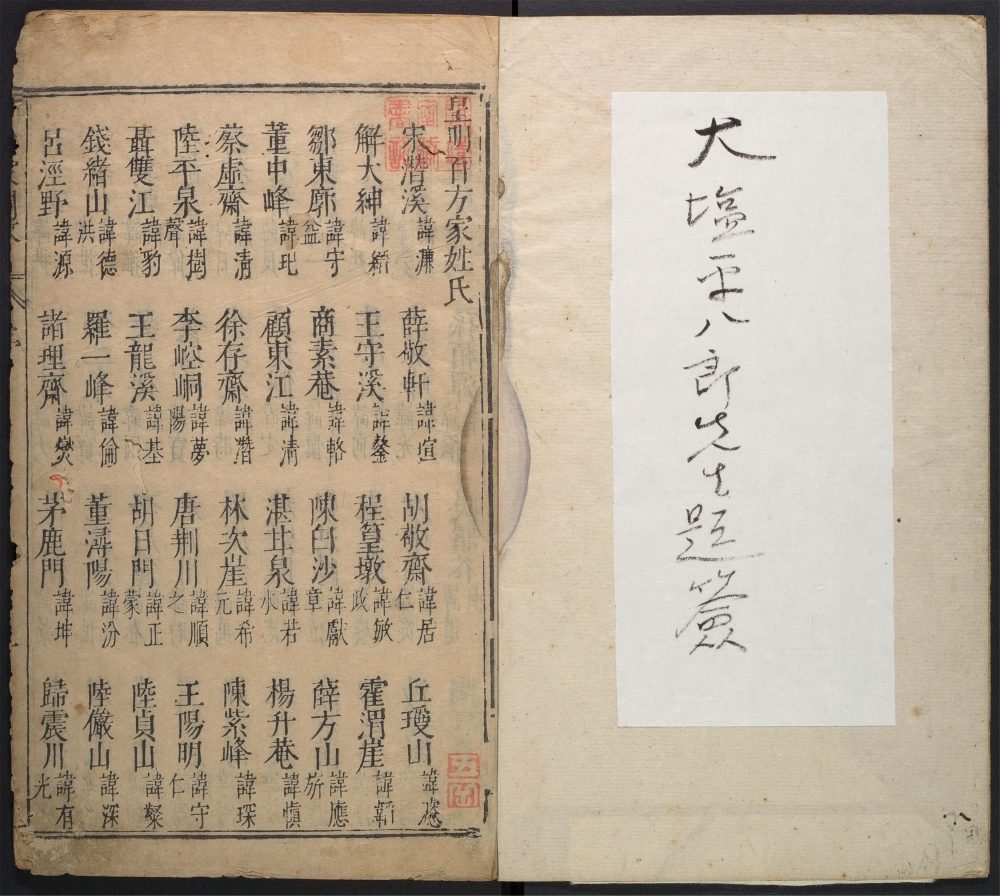 大塩平八郎先生題簽
皇明百方家姓氏
宋潛溪 諱濂 薛敬軒 諱瑄 胡敬齋 諱居仁 丘瓊山 諱濬
解大紳 諱縉 王守溪 諱鏊 程篁墩 諱敏政 霍渭崖 諱韜
鄒東廓 諱守益 商素菴 諱輅 陳白沙 諱獻章 薛方山 諱應旂
董中峰 諱玘 顧東江 諱清 湛甘泉 諱若水 楊升菴 諱慎
蔡虛齋 諱清 徐存齋 諱階 林次崖 諱希元 陳紫峰 諱琛
陸平泉 諱樹聲 李崆峒 諱夢陽 唐荆川 諱順之 王陽明 諱守仁
聶雙江 諱豹 王龍溪 諱基 胡日門 諱正蒙 陸貞山 諱粲
錢緒山 諱德洪 羅一峰 諱倫 董潯陽 諱汾 陸儼山 諱深
呂涇野 諱源 諸理齋 諱燮 茅鹿門 諱坤 歸震川 諱有光